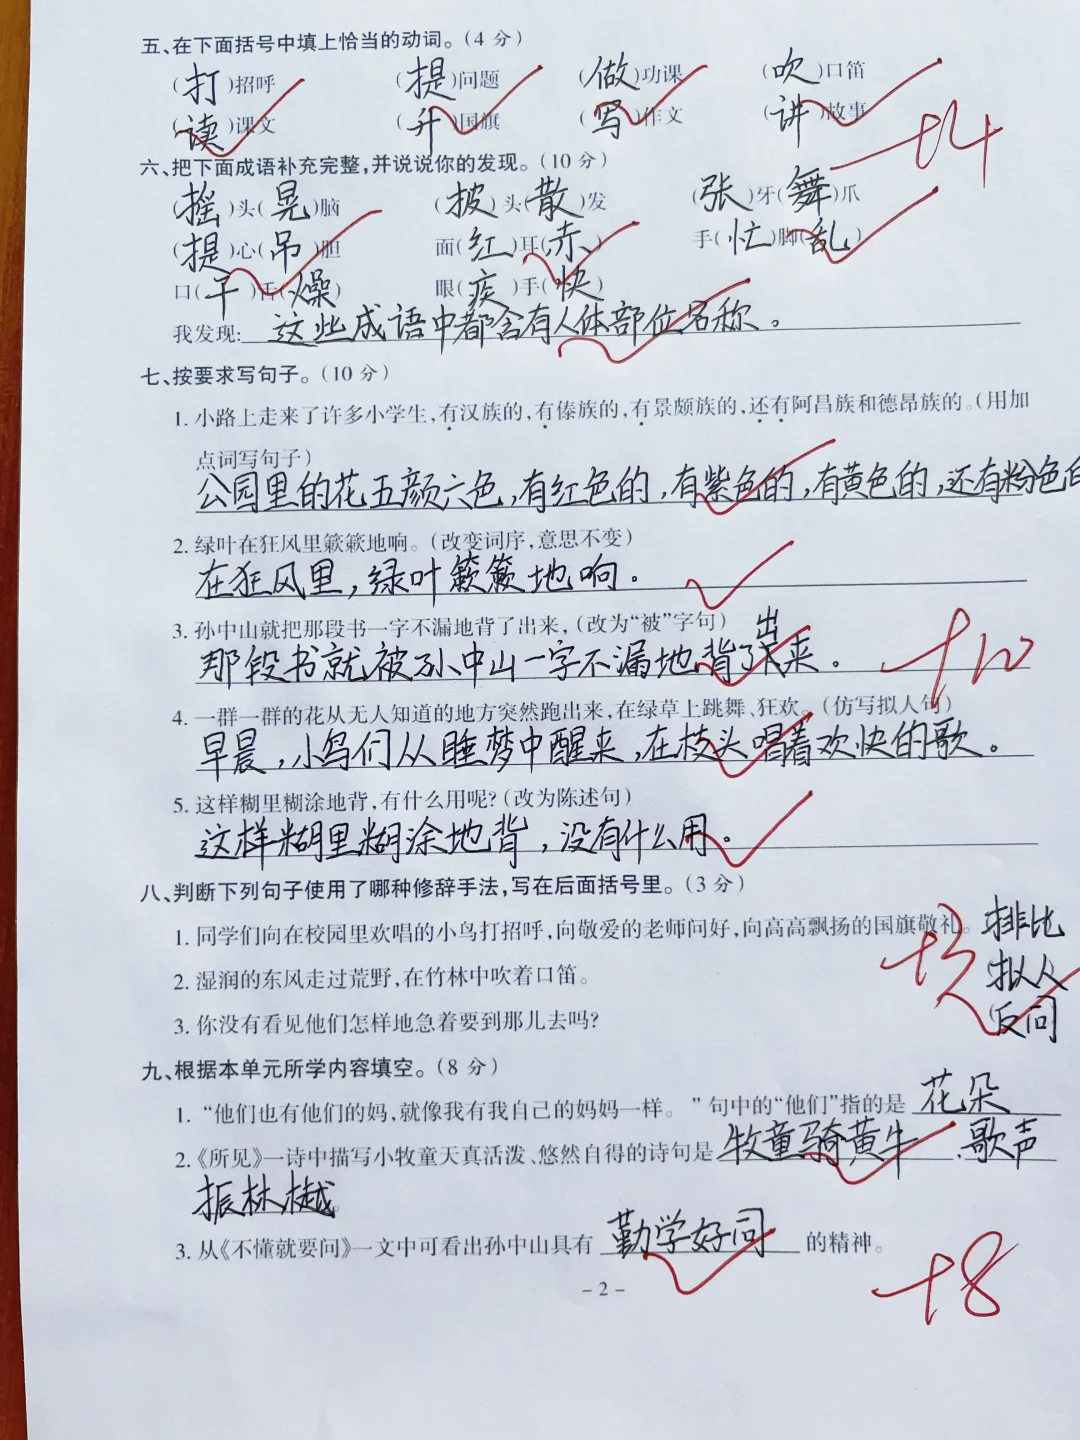 五、在下面括号中填上恰当的动词。(4分)
(打)招呼 (提)问题 (做)功课 (吹)口笛
(读)课文 (升)国旗 (写)作文 (讲)故事
+4
六、把下面成语补充完整,并说说你的发现。(10分)
(摇)头(晃)脑 (披)头(散)发 (张)牙(舞)爪
(提)心(吊)胆 面(红)耳(赤) 手(忙)脚(乱)
口(干)舌(燥) 眼(疾)手(快)
我发现:这些成语中都含有人体部位名称。
七、按要求写句子。(10分)
1. 小路上走来了许多小学生,有汉族的,有傣族的,有景颇族的,还有阿昌族和德昂族的。(用加
点词写句子)
公园里的花五颜六色,有红色的,有紫色的,有黄色的,还有粉色的
2. 绿叶在狂风里簌簌地响。(改变词序,意思不变)
在狂风里,绿叶簌簌地响。
3. 孙中山就把那段书一字不漏地背了出来,(改为“被”字句)
那段书就被孙中山一字不漏地背了出来。
+10
4. 一群一群的花从无人知道的地方突然跑出来,在绿草上跳舞、狂欢。(仿写拟人句)
早晨,小鸟们从睡梦中醒来,在枝头唱着欢快的歌。
5. 这样糊里糊涂地背,有什么用呢?(改为陈述句)
这样糊里糊涂地背,没有什么用。
八、判断下列句子使用了哪种修辞手法,写在后面括号里。(3分)
1. 同学们向在校园里欢唱的小鸟打招呼,向敬爱的老师问好,向高高飘扬的国旗敬礼。(排比
2. 湿润的东风走过荒野,在竹林中吹着口笛。 (拟人
3. 你没有看见他们怎样地急着要到那儿去吗? (反问
+3
九、根据本单元所学内容填空。(8分)
1. “他们也有他们的妈,就像我有我自己的妈妈一样。”句中的“他们”指的是 花朵
2.《所见》一诗中描写小牧童天真活泼、悠然自得的诗句是 牧童骑黄牛 , 歌声
振林樾。
3. 从《不懂就要问》一文中可看出孙中山具有 勤学好问 的精神。
+8
- 2 -